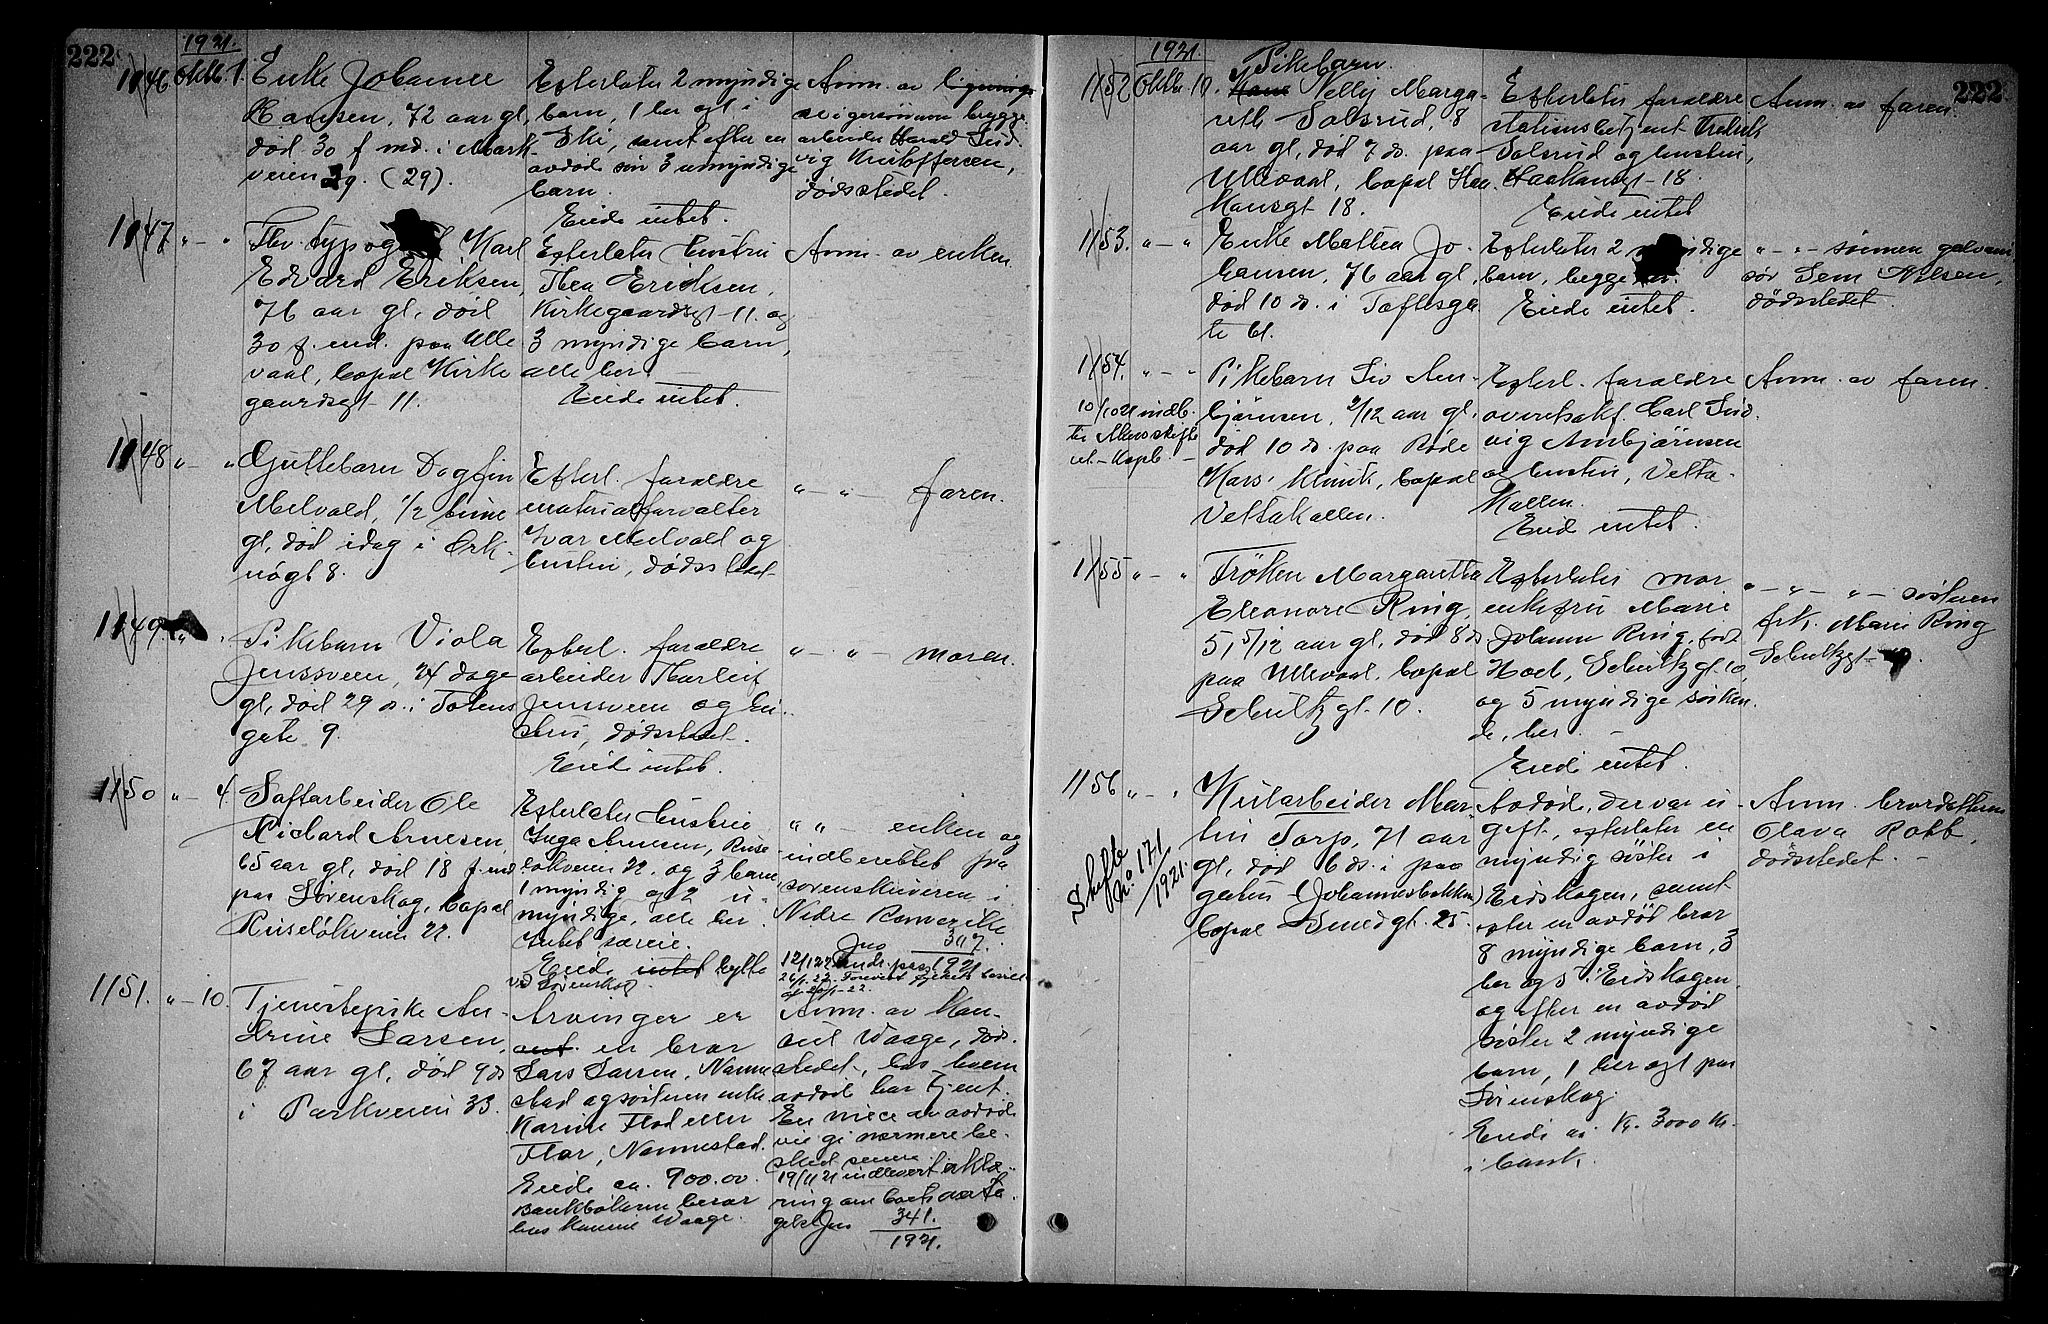 222.
1921.
1146 Oktb. 1. Enke Johanne
Hansen, 72 aar gl,
død 30 f. md. i Mark
veien 29. (29).
Efterlater 2 myndige
barn, 1 her og 1 i
Ski, samt efter en
avdød søn 3 umyndige
barn.
Eiede intet.
Anm. av
svigersønnen brygge
arbeider Harald Lud
vig Kristoffersen,
dødsstedet.
1147 " - " Fhv. typograf Karl
Edvard Eriksen,
76 aar gl, død
30 f. md. paa Ulle
vaal, bopæl Kirke
gaardsgt 11.
Efterlater hustru
Thea Eriksen,
Kirkegaardsgt 11. og
3 myndige barn,
alle her.
Eiede intet.
Anm. av enken
1148 " - " Guttebarn Dagfin
Melvold, 1/2 time
gl, død idag i Ork-
nøgt 8.
Efterl. forældre
materialforvalter
Ivar Melvold og
hustru, dødsstedet
" - " - faren.
1149 " " Pikebarn Viola
Jenssveen, 24 dage
gl, død 29 ds. i Totens
gate 9.
Efterl. forældre
arbeider Thorleif
Jenssveen og hu-
stru, dødsstedet.
Eiede intet.
" - " - moren.
1150 " - 4. Saftarbeider Ole
Richard Arnesen,
65 aar gl, død 18 f. md
paa Lørenskog, bopæl
Ruseløkveien 22.
Efterlater hustru
Inga Arnesen, Ruse
løkveien 22. og 3 barn,
1 myndig og 2 u-
myndige, alle her.
Intet særeie.
Eiede intet hytte
ved Lørenskog.
" " - enken og
indberettet fra
sorenskriveren i
Nedre Romerike
Jno 317.
1921
1151. " - 10. Tjenestepike An-
drine Larsen,
67 aar gl, død 9 ds
i Parkveien 33.
Arvinger er
en bror
Lars Larsen, Nanne
stad og søsteren enke
Karine Flod eller
Flor, Nannestad.
Eiede ca. 900.00.
Bankboken beror
hos Konsul Waage.
Anm. av Kon-
sul Waage, død-
stedet, hos hvem
avdøde har tjent.
En niece av avdøde
vil gi nærmere be-
sked senere.
19/11 21 indlevert erklæ-
ring om boets overta
gelse Jno 341.
1921.
222.
1921.
1152 Oktbr 10. Pikebarn
Nelly Marga-
reth Solsrud, 8
aar gl, død 7 ds. paa
Ullevaal, bopæl Haa
konsgt 18.
Efterlater forældre
stationsbetjent Fredrik
Solsrud og hustru,
Haakonsgt 18.
Eiede intet
Anm. av faren.
1153. " - " Enke Mathea Jo-
hansen, 76 aar gl,
død 10 ds. i Toftesga
te 61.
Efterlater 2 myndige
barn, begge her.
Eiede intet.
" - " - sønnen galvani
sør Sem Nilsen,
dødsstedet.
1154. " - " Pikebarn Liv Arn-
bjørnsen, 2/12 aar gl,
død 10 ds. paa Røde
Kors' Klinik, bopæl
Vettakollen.
10/10 21 indb.
til Akersskifte
ret - Kopb -
Efterl. forældre
overretssakf. Carl Lud
vig Arnbjørnsen
og hustru, Vetta-
kollen.
Eied intet.
Anm. av faren.
1155 " - " Frøken Margaretha
Eleonore Ring,
5, 5/12 aar gl, død 8 ds
paa Ullevaal, bopæl
Schultzgt. 10.
Efterlater mor
enkefru Marie
Johanne Ring, født
Hoel, Schultzgt. 10,
og 5 myndige søsken
de, her.
Eiede intet.
" - " - " - søsteren
frk. Marie Ring
Schultzgt 10.
1156 " - " Hutarbeider Mar
tin Torp, 71 aar
gl, død 6 ds. i paa
gaten (Johannesbakken)
bopæl Smedgt. 25.
Skifte
No 171
/1921.
Avdøde, der var u-
gift, efterlater en
myndig søster i
Eidskogen, samt
efter en avdød bror
8 myndige barn, 3
her og 5 i Eidskogen,
og efter en avdød
søster 2 myndige
barn, 1 her og 1 paa
Lørenskog.
Eiede ca. Kr. 3000 Kr.
i bank.
Anm. brordatteren
Olava Robb,
dødsstedet. -